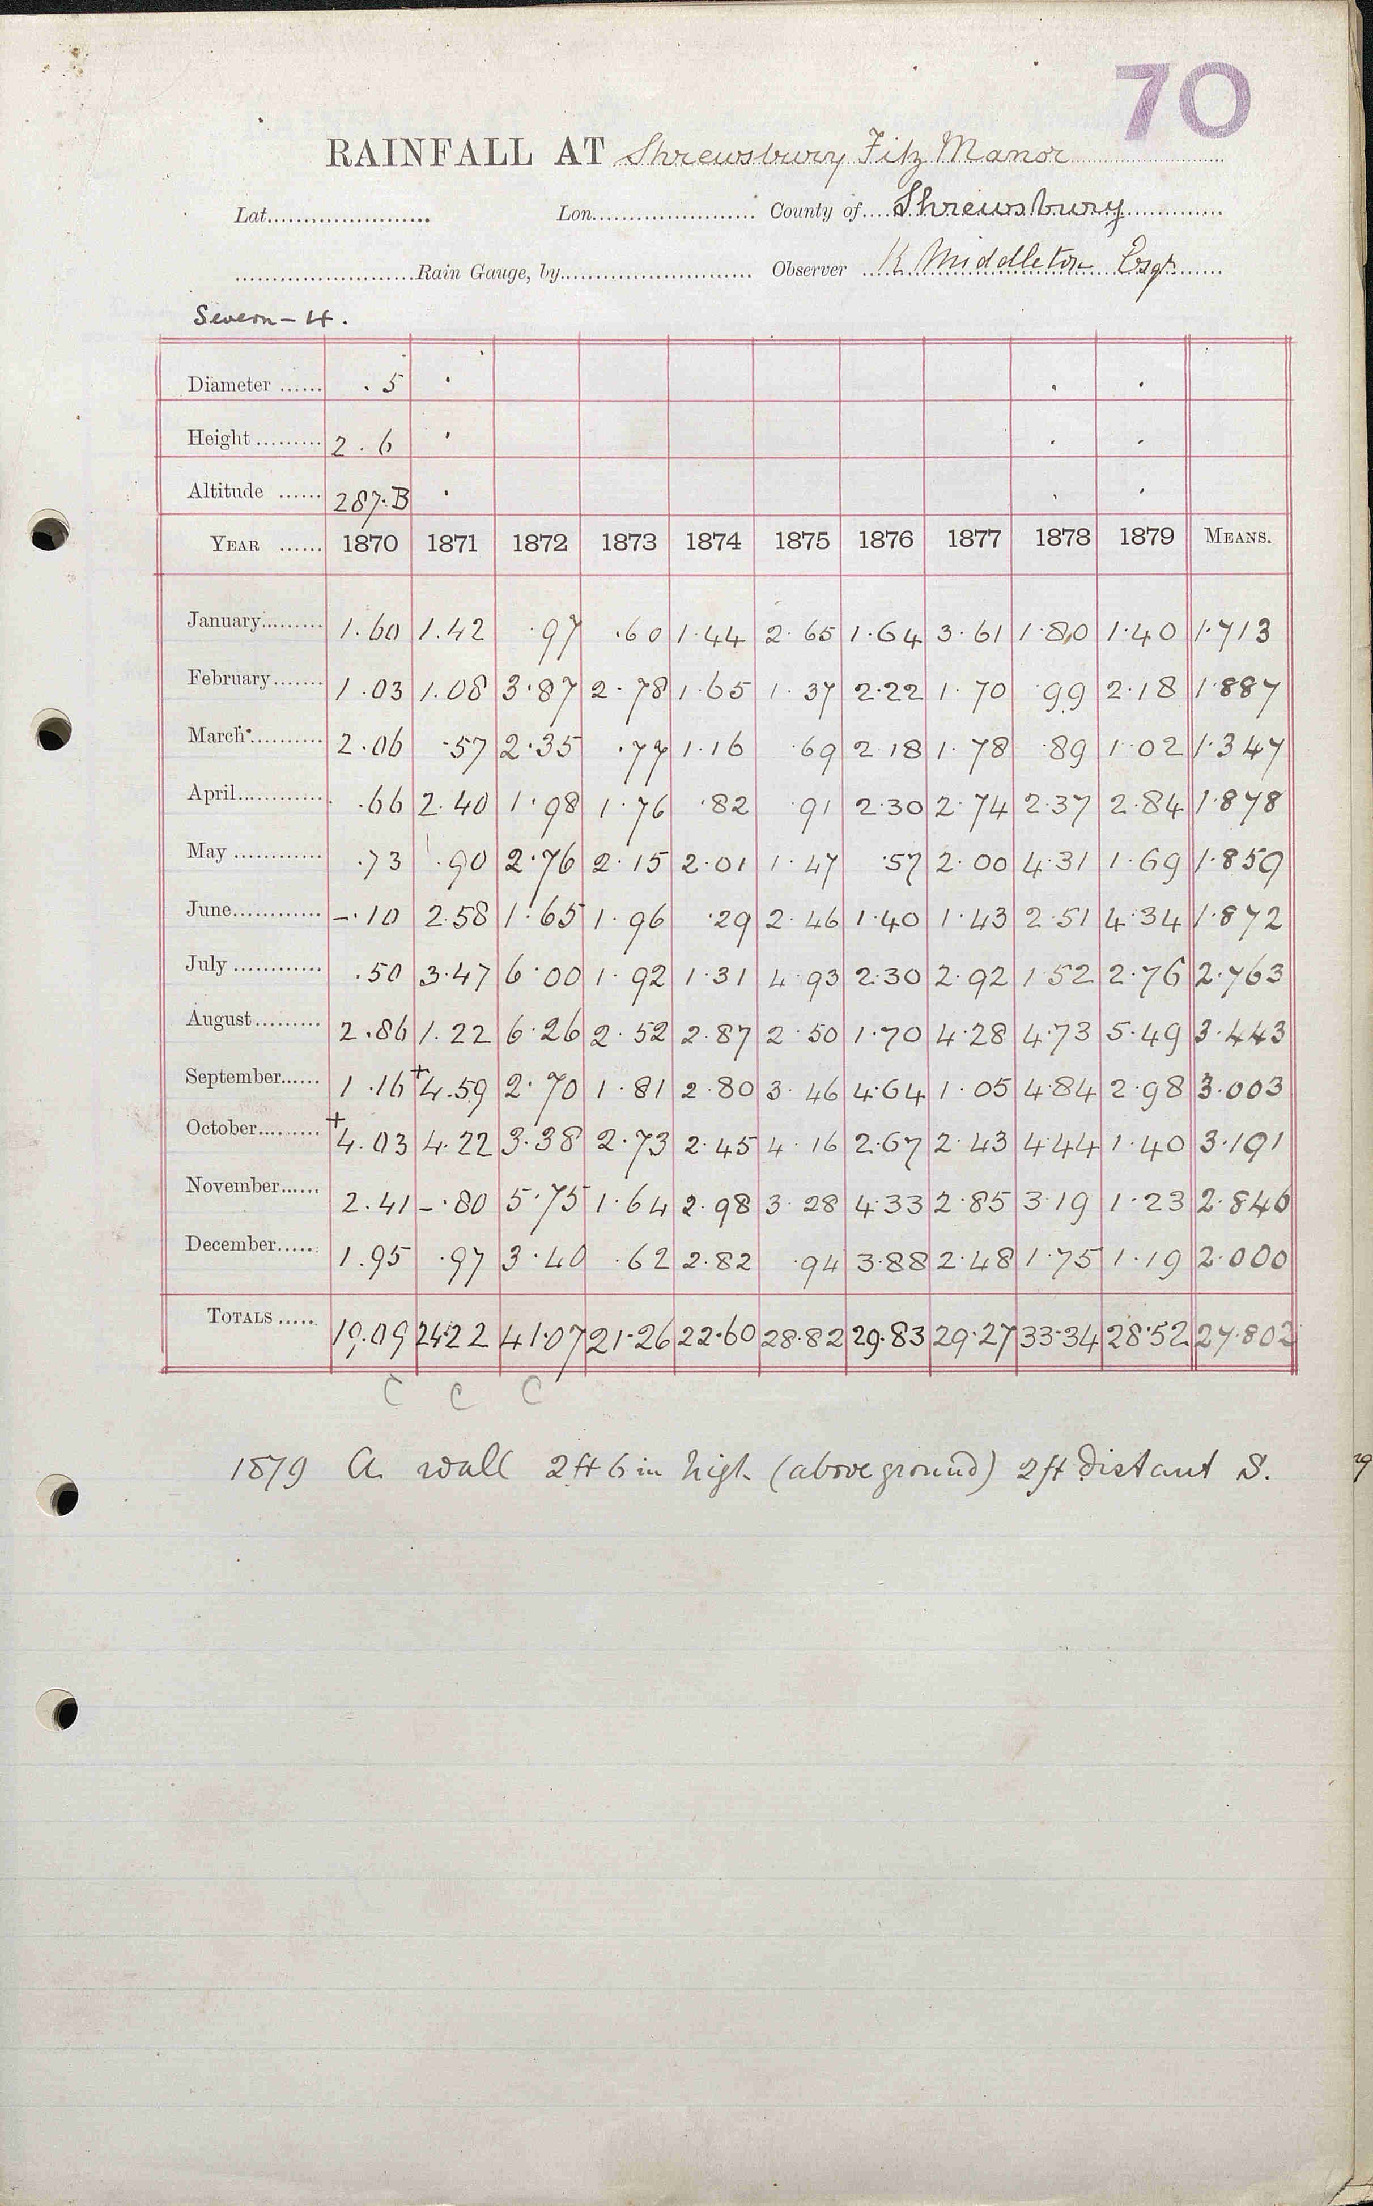 70
RAINFALL AT Shrewsbury Fitz Manor
Lat. Lon. County of Shrewsbury
Rain Gauge, by Observer R Middleton Esqr
Severn – 4.
Diameter .5
Height 2.6
Altitude 287.B
YEAR 1870 1871 1872 1873 1874 1875 1876 1877 1878 1879 MEANS.
January 1.60 1.42 .97 .60 1.44 2.65 1.64 3.61 1.80 1.40 1.713
February 1.03 1.08 3.87 2.78 1.65 1.37 2.22 1.70 .99 2.18 1.887
March 2.06 .57 2.35 .77 1.16 .69 2.18 1.78 .89 1.02 1.347
April .66 2.40 1.98 1.76 .82 .91 2.30 2.74 2.37 2.84 1.878
May .73 .90 2.76 2.15 2.01 1.47 .57 2.00 4.31 1.69 1.859
June –.10 2.58 1.65 1.96 .29 2.46 1.40 1.43 2.51 4.34 1.872
July .50 3.47 6.00 1.92 1.31 4.93 2.30 2.92 1.52 2.76 2.763
August 2.86 1.22 6.26 2.52 2.87 2.50 1.70 4.28 4.73 5.49 3.443
September 1.16 +4.59 2.70 1.81 2.80 3.46 4.64 1.05 4.84 2.98 3.003
October +4.03 4.22 3.38 2.73 2.45 4.16 2.67 2.43 4.44 1.40 3.191
November 2.41 –.80 5.75 1.64 2.98 3.28 4.33 2.85 3.19 1.23 2.846
December 1.95 .97 3.40 .62 2.82 .94 3.88 2.48 1.75 1.19 2.000
TOTALS 19.09 24.22 41.07 21.26 22.60 28.82 29.83 29.27 33.34 28.52 27.802
C C C
1879 A wall 2ft 6in high (above ground) 2ft distant S.